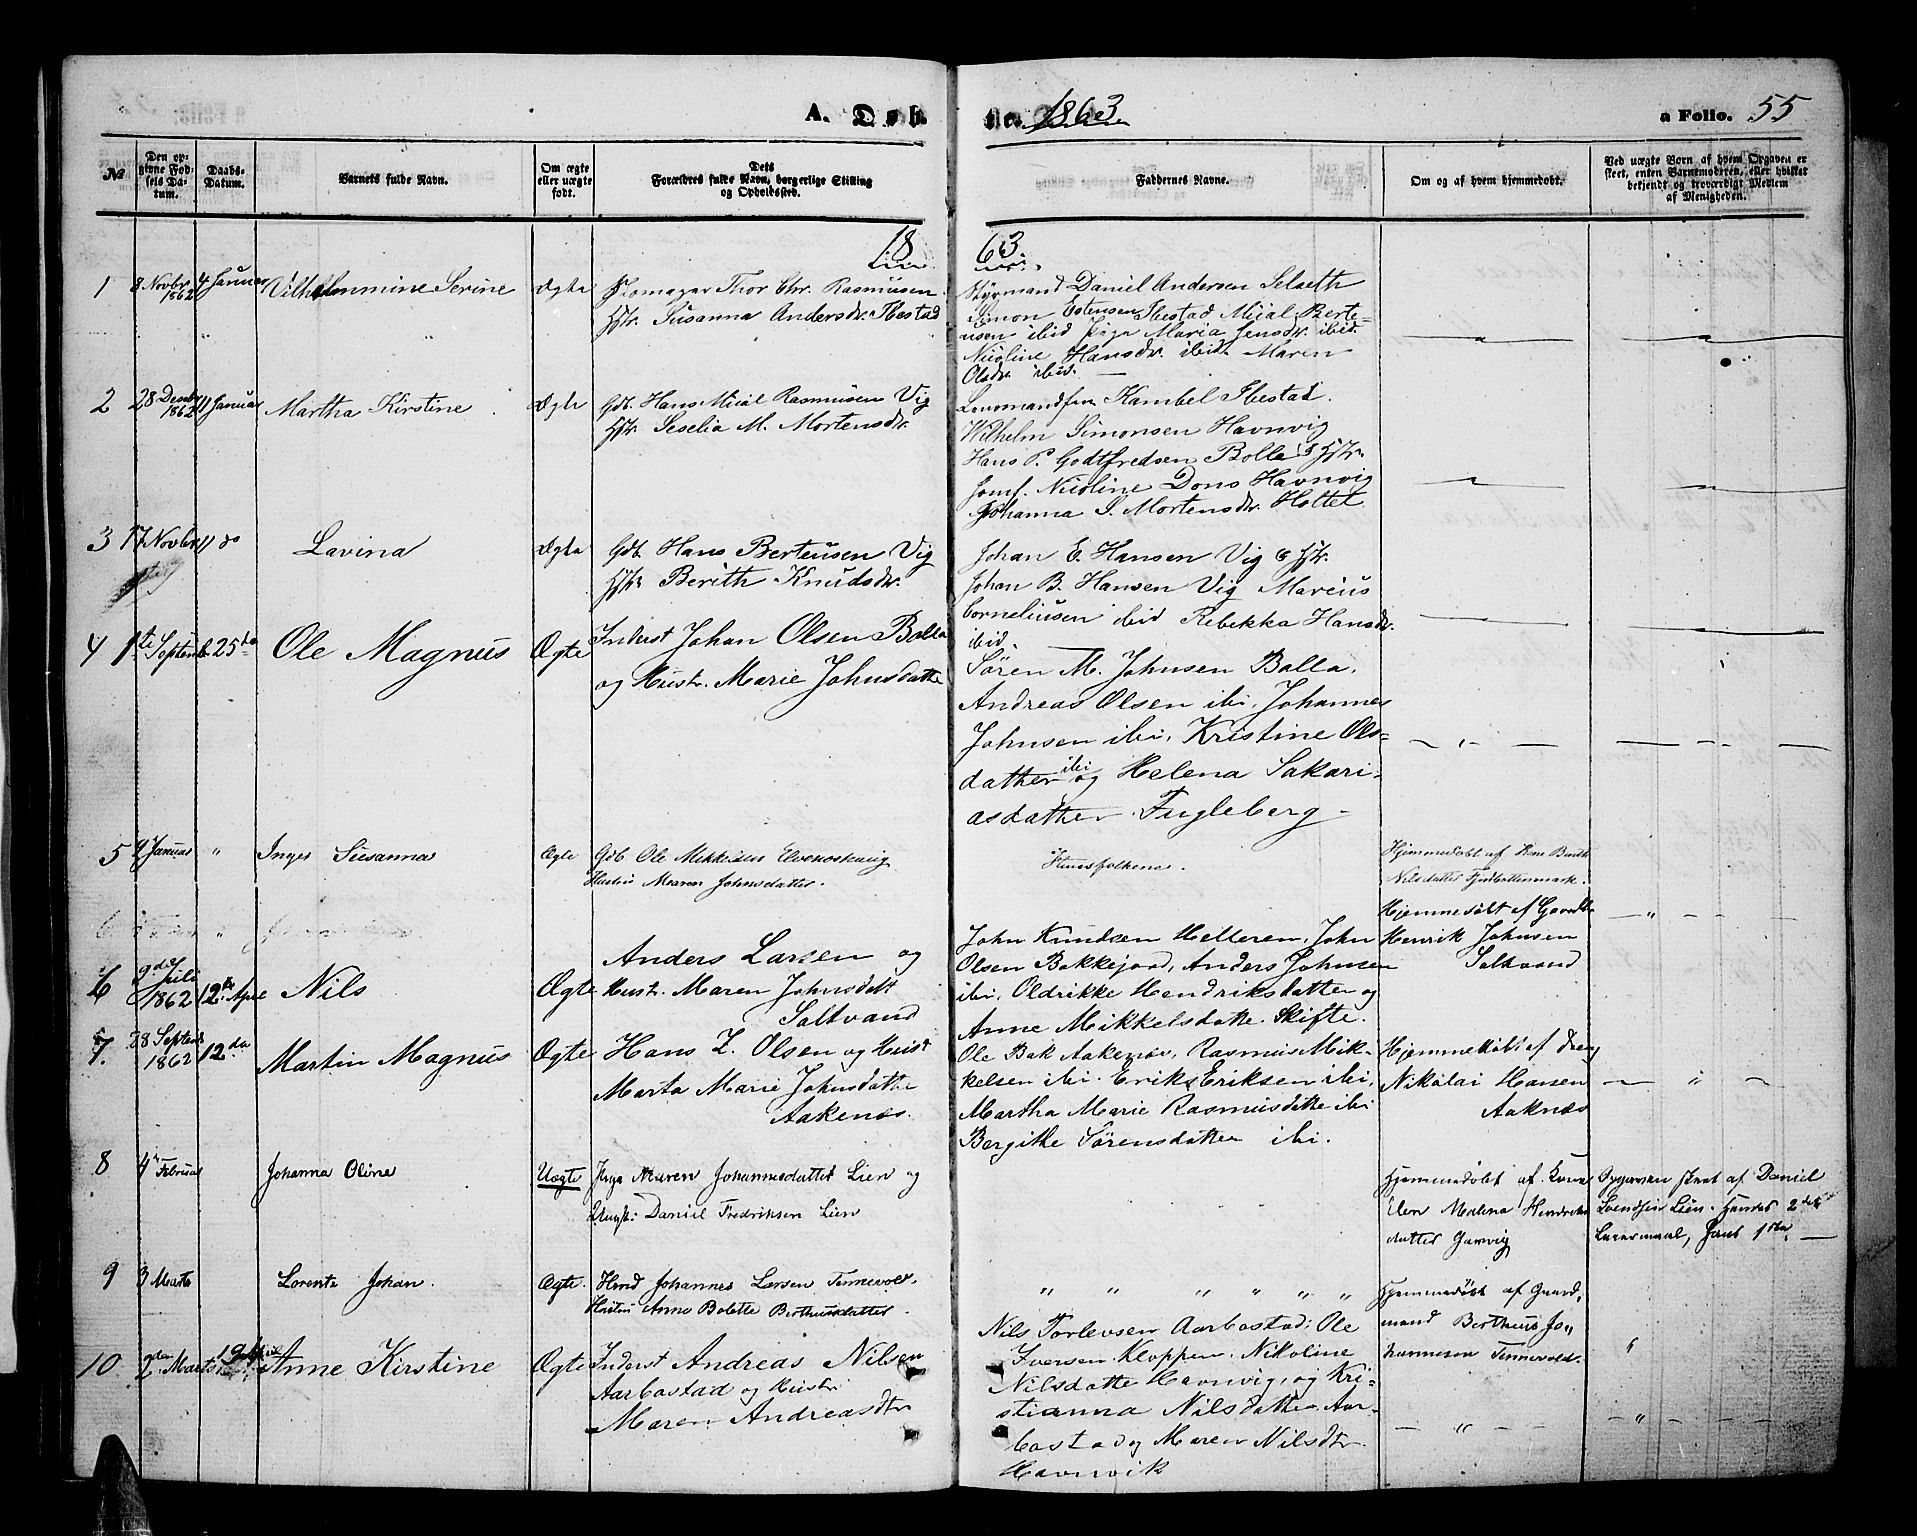 A. Døb
te. 1863
a Folio. 55
No
Den opgivne Fødsels Datum.
Daabs-Datum.
Barnets fulde Navn.
Om ægte eller uægte født.
Dets Forældres fulde Navn, borgerlige Stilling og Opholdssted.
Faddernes Navne.
Om og af hvem hjemmedøbt.
Ved uægte Børn af hvem Opgaven er skeet, enten Barnemoderen, eller hvilket bekjendt og troværdigt Medlem af Menigheden.
1863.
1
8 Novbr 1862
4 Januar
Vilhelmmine Serine
Ægte
Thor Chr. Rasmusen
Hstr. Susanna Andersdr. Ibestad
Styrmand Daniel Andersen Selseth
Simon Estensen Ibestad Mical Berte-
usen ibid Piga Maria Jensdr. ibid.
Nicoline Hansdr. ibid. Maren
Olsdr ibid.
2
28 Decmbr 1862
11 Januar
Martha Kirstine
Ægte
Gdb. Hans Mical Rasmusen Vig
Hstr. Seselia M. Mortensdr.
Kambel Ibestad.
Wilhelm Simonsen Havnvig
Hans P. Godtfredsen Bolle & Hstr.
Jomf. Nicoline Dons Havnvig
Johanna S. Mortensdr. Hottet
3
17 Novbr
11 do
Lavina
Ægte
Gdb. Hans Berteusen Vig
Hstr Berith Knudsdr.
Johan E. Hansen Vig & Hstr.
Johan B. Hansen Vig Marcus
Corneliusen ibid Rebekka Hansdr.
ibid.
4
1ste Septemb
25de
Ole Magnus
Ægte
Inderst Johan Olsen Balla
og Hustr. Marie Johnsdatte
Søren M. Johnsen Balla,
Andreas Olsen ibi, Johannes
Johnsen ibi, Kristine Ols-
datter ibi og Helena Sakari-
asdatter Fugleberg
5
9 Januar
"
Inger Susanna
Ægte
Gdb Ole Mikkelsen Elvenæshaug
Hustru Maren Johnsdatter.
Huusfolkene.
Hjemmedøbt af Kone Berith
Nilsdatter
6
9de Juli 1862
12te Apr
Nils
Ægte
Anders Larsen og
Hustr. Maren Johnsdatt
Saltvand
John Knudsen Helleren, John
Olsen Bakkejord, Anders Johnsen
ibi, Oldrikke Hendriksdatter og
Anne Mikkelsdatte Skifte.
Hjemmedøbt af Gaardb
Henrik Johnsen
Saltvand
7.
28 Septemb 1862
12da
Martin Magnus
Ægte
Hans Z. Olsen og Hustr
Marta Marie Johnsdatter
Aakenæs.
Ole Bak Aakenæs, Rasmus Mik-
kelsen ibi. Eriks Eriksen ibi,
Martha Marie Rasmusdatte ibi
Bergithe Sørensdatter ibi.
Hjemmedøbt af Dreng
Nikolai Hansen
Aaknæs
8
4 Februar
Johanna Oline
Uægte
Pige Maren Johannesdatter Lien og
Ungk: Daniel Fredriksen Lien
Hjemmedøbt af Kone
Elen Malena Hendriks
datter Gavvig
Opgaven skeet af Daniel
Svendsen Lien. Hendes 2det
Leiermaal, Hans 1ste.
9
3 Marts
Lorentz Johan.
Ægte.
Johannes Larsen Tennevold,
Hustru Anne Bolette Bertheusdatter
" " " " " "
Hjemmedøbt af Gaard-
mand Bertheus Jo-
hannesen Tennevold.
10
2den Marts
19 April
Anne Kirstine
Ægte
Inderst Andreas Nilsen
Aarbostad og Hustr:
Maren Andreasdtr
Nils Torlevsen Aarbostad; Ole
Iversen Kloppen. Nikoline
Nilsdatte Havnvig, og Kri-
stianna Nilsdatter Aar-
bostad og Maren Nilsdtr
Havnvik